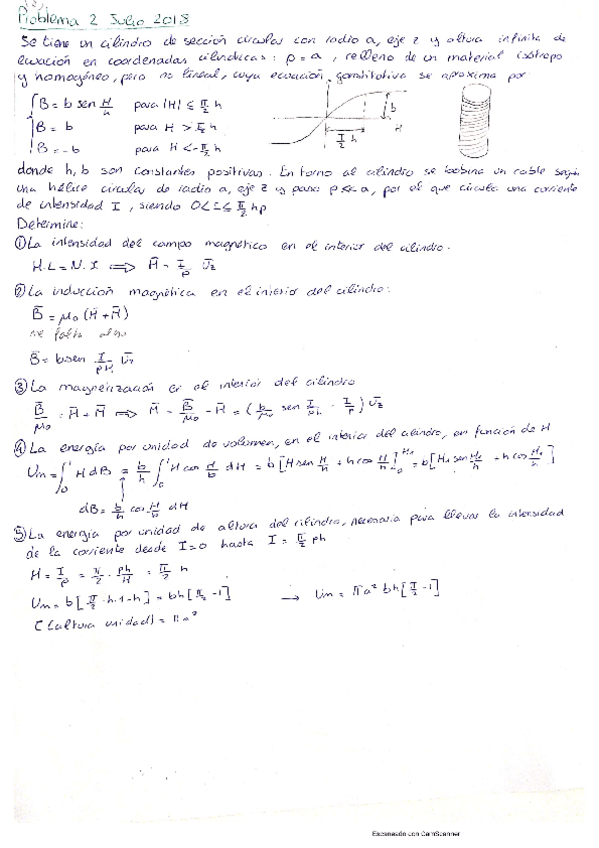 Problema 2 Julio 2018
Se tiene un cilindro de sección circular con radio a, eje z y altura infinita de
ecuación en coordenadas cilíndricas: ρ = a, relleno de un material isótropo
y homogéneo, pero no lineal, cuya ecuación constitutiva se aproxima por
B = b sen H/h para |H| ≤ π/2 h
B = b para H > π/2 h
B = -b para H < -π/2 h
b
π/2 h
H
donde h, b son constantes positivas. En torno al cilindro se bobina un cable según
una hélice circular de radio a, eje z y paso p << a, por el que circula una corriente
de intensidad I, siendo 0 < I ≤ π/2 hp
Determine:
① La intensidad del campo magnético en el interior del cilindro.
H·L = N·I ⟹ H̄ = I/p ū_z
② La inducción magnética en el interior del cilindro:
B̄ = μ₀ (H̄ + M̄)
me falta algo
B̄ = b sen I/ph ū_z
③ La magnetización en el interior del cilindro
B̄/μ₀ = H̄ + M̄ ⟹ M̄ = B̄/μ₀ - H̄ = (b/μ₀ sen I/ph - I/p) ū_z
④ La energía por unidad de volumen, en el interior del cilindro, en función de H
Um = ∫₀ H dB = b/h ∫₀ H cos H/h dH = b [H sen H/h + h cos H/h]₀^H₁ = b [H₁ sen H₁/h + h cos H₁/h]
dB = b/h cos H/h dH
⑤ La energía por unidad de altura del cilindro, necesaria para llevar la intensidad
de la corriente desde I = 0 hasta I = π/2 ph
H = I/p = π/2 · ph/p = π/2 h
Um = b [π/2 · h · 1 - h] = bh [π/2 - 1] → Um = πa² bh [π/2 - 1]
(altura unidad) = πa²
Escaneado con CamScanner